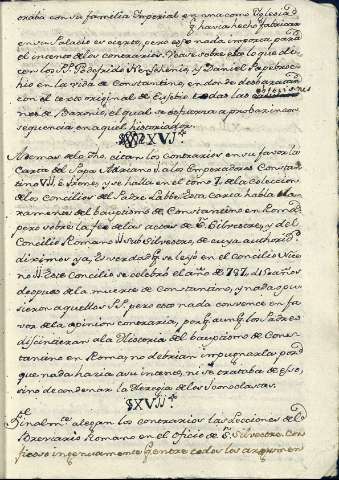 oraba con su familia Imperial en una como Yglesia q.
havia hecho fabricar
en su Palacio es cierto, pero esso nada importa para
el intento de los contrarios. Vease sobre esto lo que di-
cen los PP. Godofrido Henschenio, y Daniel Papebro-
chio en la vida de Constantino, en donde desbaratan
con el texto original de Eusebio todas las
objesiones
nes de Baronio, el qual se esfuerza a probar incon-
sequencia en aquel historiador.
§XVI.
Ademas de lo dho, citan los contrarios en su favor la
Carta del Papa Adriano I. a los Emperadores Constan-
tino VII. e Irene, y se halla en el tomo 7. de la Coleccion
de los Concilios del Padre Labbe. Esta carta habla cla-
ramente del bauptismo de Constantino en Roma
pero sobre la fee de las actas de S. Silvestre, y del
Concilio Romano II. sub Silvestre, de cuya authorid.
diximos ya. Es verdad q. se leyó en el Concilio Nice-
no II. Este Concilio se celebró el año de 787, 450 años
despues de la muerte de Constantino, y nada opu-
sieron aquellos PP. pero esto nada convence en fa-
vor de la opinion contraria, porq. aunq. los Padres
disintieran a la Historia del bauptismo de Cons-
tantino en Roma, no debrian impugnarla, porq.
que nada hazia a su intento, ni se trataba de esso,
sino de condenar la Heregia de los Iconoclastas.
§XVII.
Finalm.te alegan los contrarios las Lecciones de el
Breviario Romano en el Oficio de S. Silvestre. Con-
fieso ingenuamente q. entre todos los argumen-